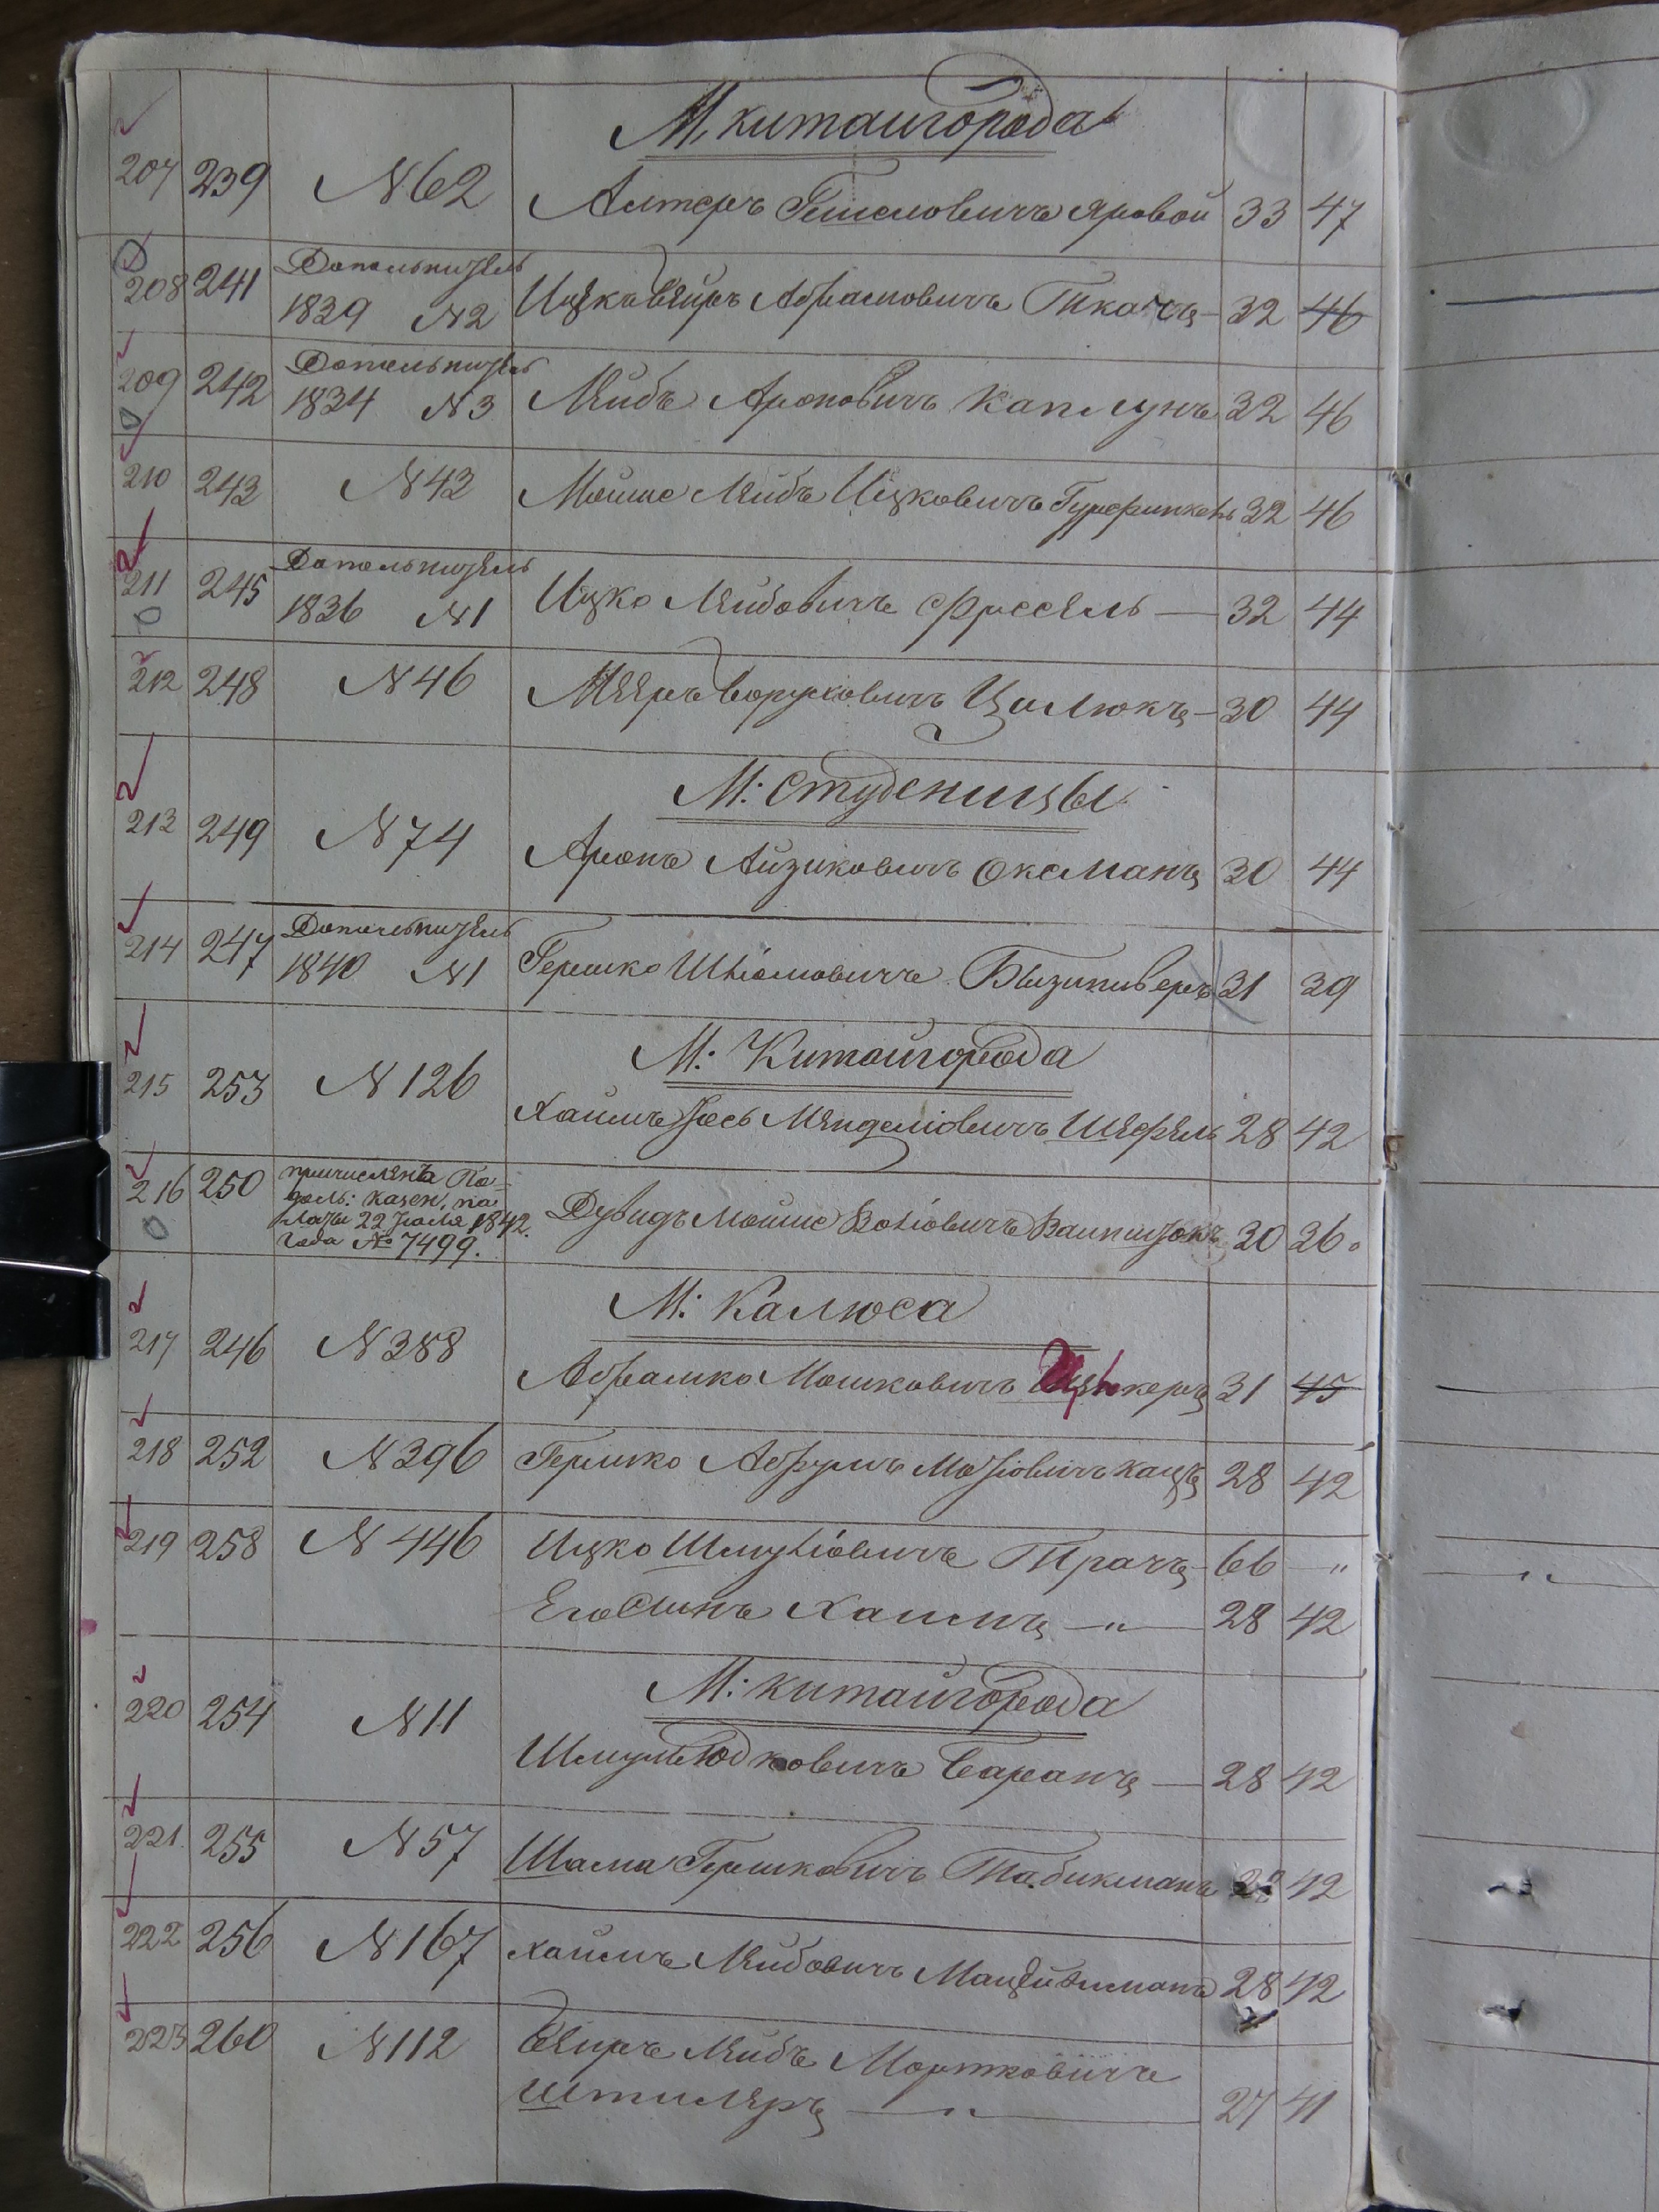 М. Китайгорода
207 239 N 62 Алтеръ Гешеловичъ Яровой 33 47
208 241 Дополнител 1839 N 2 Ицко Беиръ Абрамовичъ Ткачъ 32 46
209 242 Дополнител 1834 N 3 Лейбъ Ароновичъ Каплунъ 32 46
210 243 N 43 Мойше Лейбъ Ицковичъ 32 46
211 245 Дополнител 1836 N 1 Ицко Лейбовичъ Фиссель 32 44
212 248 N 46 Мееръ Боруховичъ Цилюкъ 30 44
М: Студеницы
213 249 N 74 Аронъ Айзиковичъ Оксманъ 30 44
214 247 Дополнител 1840 N 1 Гершко Шліомовичъ 31 39
М: Китайгорода
215 253 N 126 Хаимъ Іось Менделіовичъ Шефель 28 42
216 250 причисленъ По-
доль: казен. па
латы 22 Іюля 1842.
года № 7499.
Дувидъ Мойше Волiовичъ 30 26
М: Калюса
217 246 N 388 Абрамко Мошковичъ 31 45
218 252 N 396 Гершко Абрумъ Катзъ 28 42
219 258 N 446 Ицко Шмуліовичъ Трачъ 66 "
Его Сынъ Хаимъ " 28 42
М: Китайгорода
220 254 N 11 Шмуль Юдковичъ Баранъ 28 42
221. 255 N 57 Шама Гершковичъ Табикманъ 28 42
222 256 N 167 Хаимъ Лейбовичъ 28 42
223 260 N 112 Беиръ Лейбъ Мортковичъ
Штилеръ " 27 41